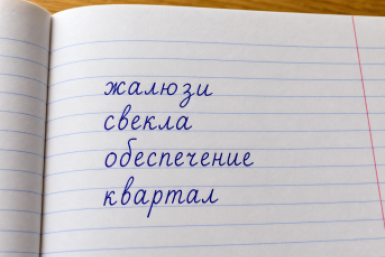 жалюзи
свекла
обеспечение
квартал